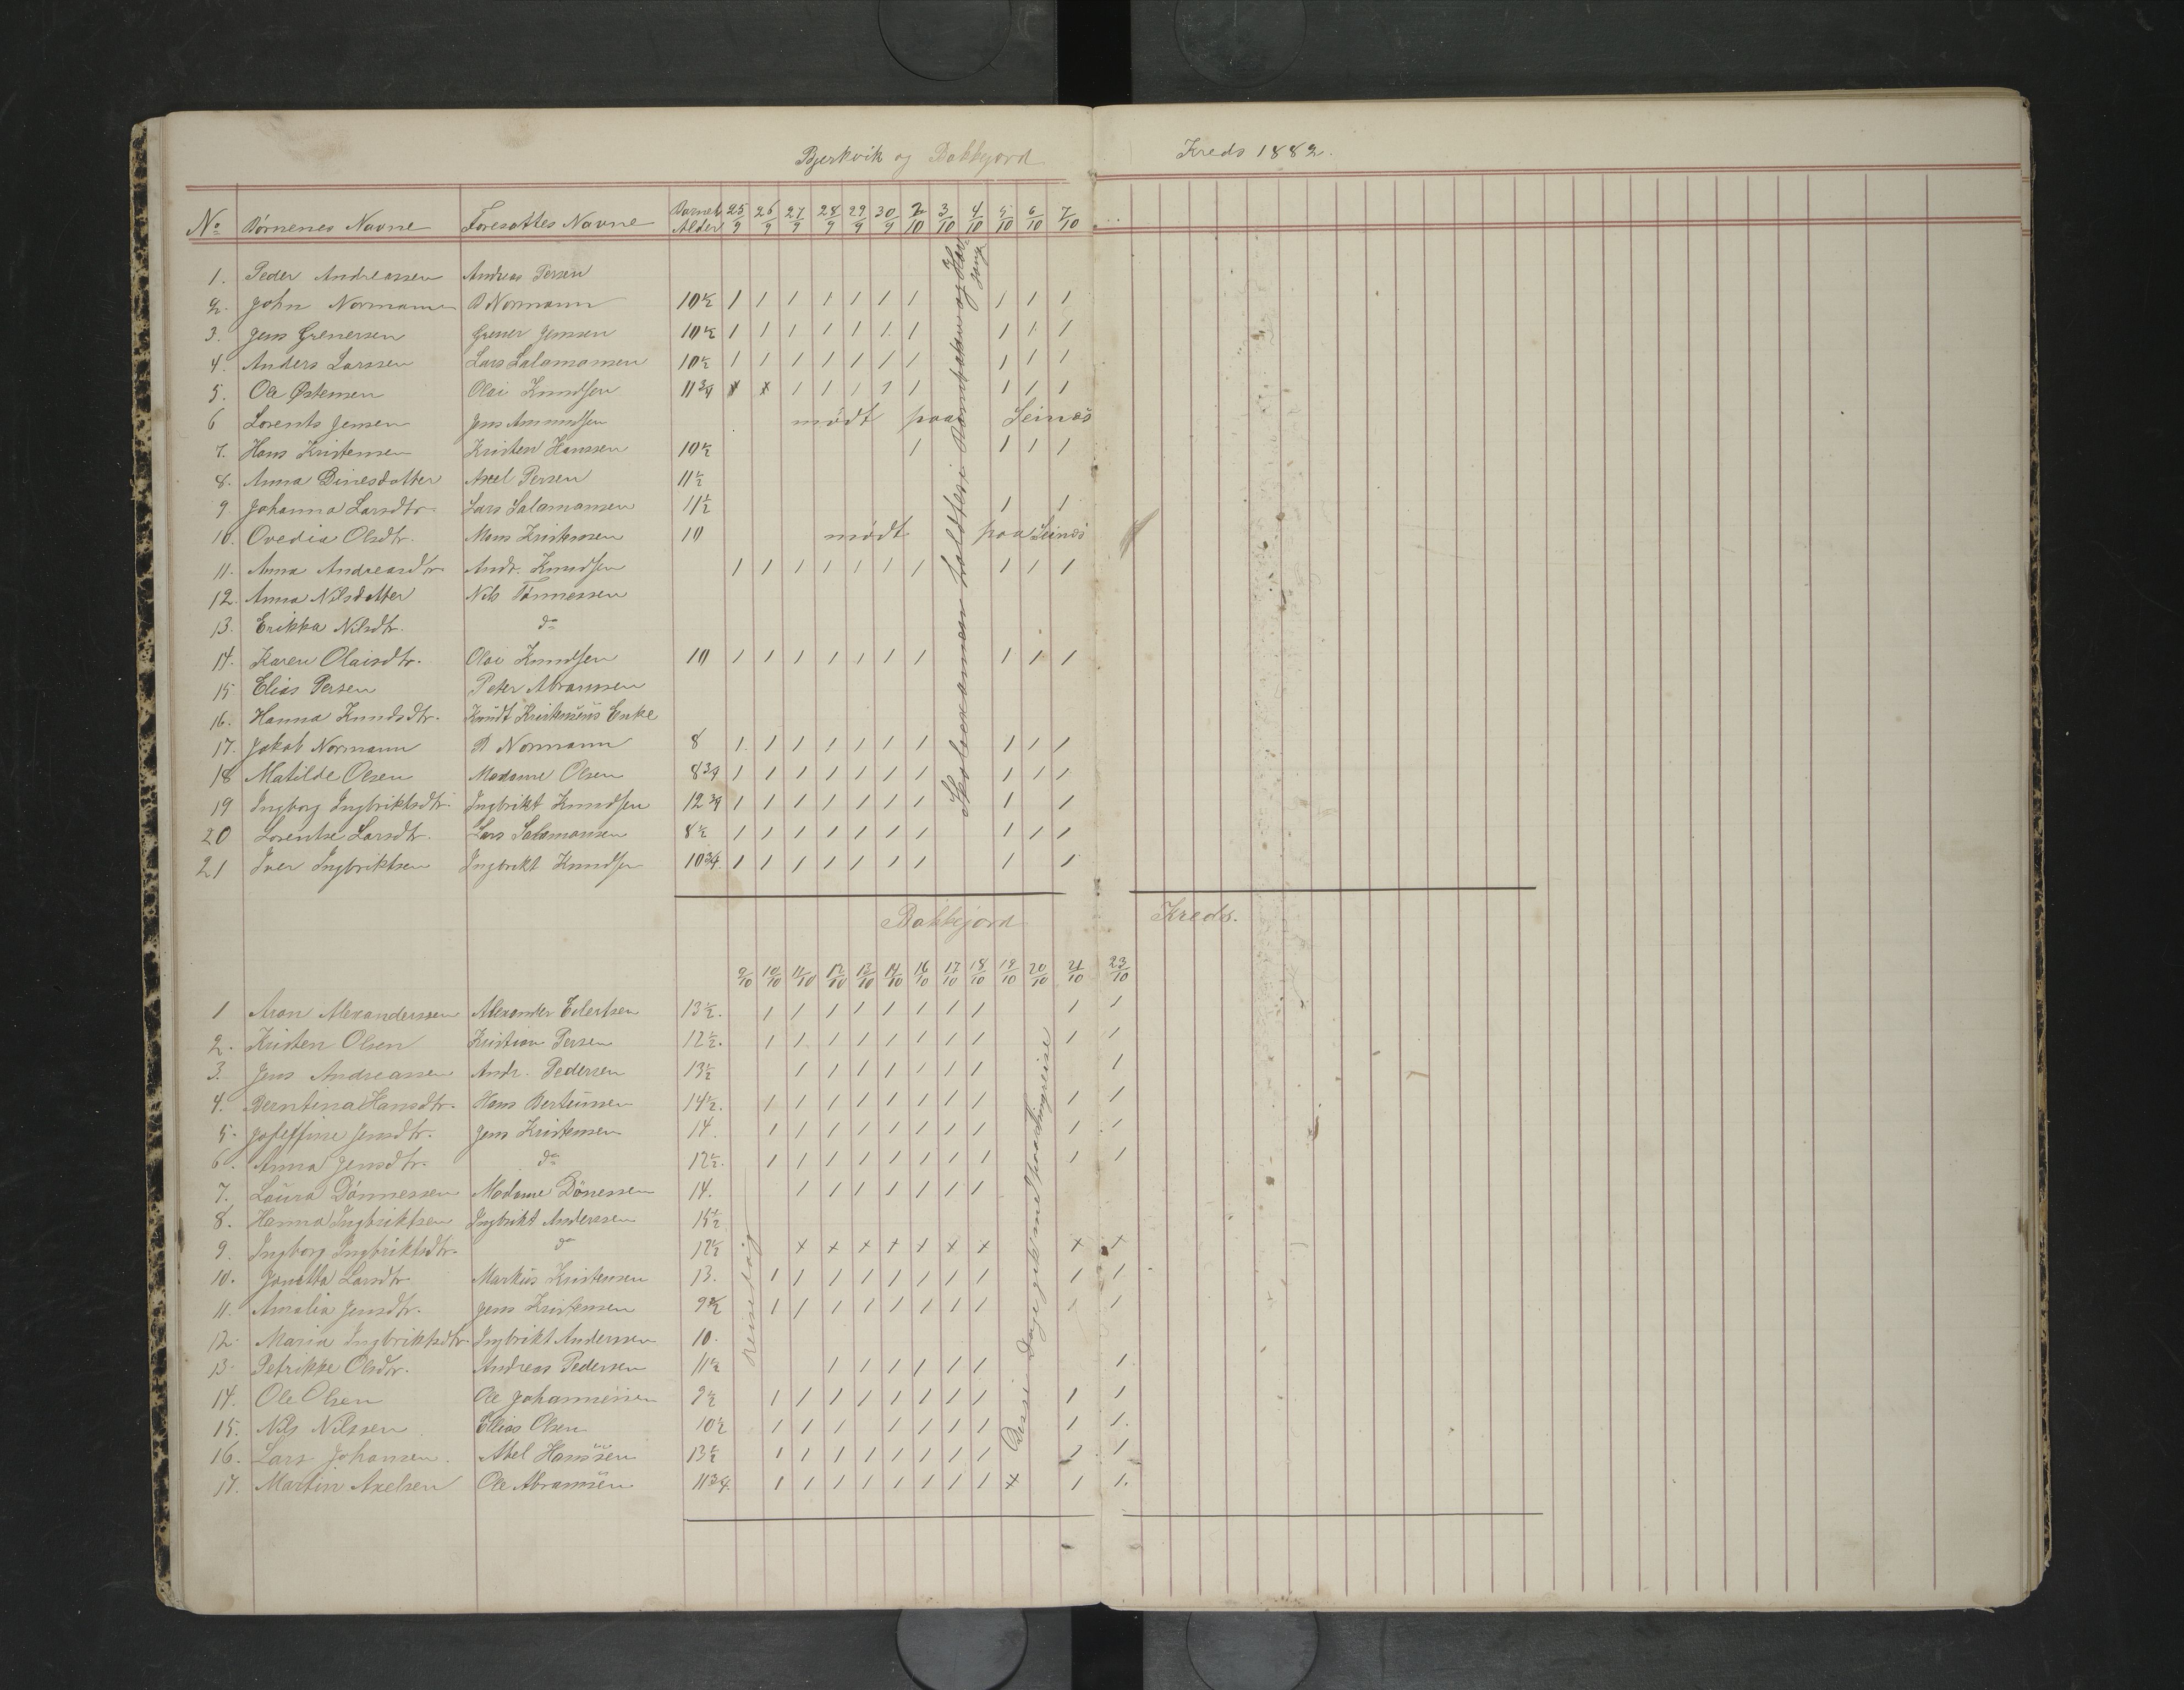 Bjerkvik og Bakkejord Kreds 1882.
No Børnenes Navne Foresattes Navne Barnets Alder 25/9 26/9 27/9 28/9 29/9 30/9 2/10 3/10 4/10 5/10 6/10 7/10
1. Peder Andreassen Andreas Persen
2. John Normann Normann 10½ 1 1 1 1 1 1 1 1 1 1
3. Jens Grenersen Grener Jenssen 10½ 1 1 1 1 1 1 1 1 1 1
4. Anders Larssen Lars Salamonsen 10½ 1 1 1 1 1 1 1 1 1 1
5. Ole Østensen Olai Knudsen 11¾ x x 1 1 1 1 1 1 1 1
6 Lorents Jensen Jens Amundsen mödt paa Leinæs
7. Hans Kristensen Kristen Hanssen 10½ 1 1 1 1
8. Anna Dinesdatter Axel Persen 11½
9 Johanna Larsdtr. Lars Salamonsen 11½ 1 1
10. Ovedia Olsdtr. Mons Kristensen 10 mödt paa Leinæs
11. Anna Andreasdtr. Andr. Knudsen 1 1 1 1 1 1 1 1 1 1
12. Anna Nilsdatter Nils Tönnessen
13. Erikka Nilsdtr. do
14. Karen Olaisdtr. Olai Knudsen 10 1 1 1 1 1 1 1 1 1 1
15 Elias Persen Peter Abramsen
16. Hanna Knudsdtr. Knudt Kristensens Enke
17. Jakob Normann Normann 8 1 1 1 1 1 1 1 1 1 1
18 Matilde Olsen Madame Olsen 8¾ 1 1 1 1 1 1 1 1 1 1
19 Ingborg Ingbriktsdtr. Ingbrikt Knudsen 12¾ 1 1 1 1 1 1 1 1 1
20 Lorentse Larsdtr. Lars Salamonsen 8½ 1 1 1 1 1 1 1 1 1 1
21 Iver Ingbriktsen Ingbrikt Knudsen 10¾ 1 1 1 1 1 1 1 1 1
Skoleexamen holdtes i og
Bakkejord Kreds.
9/10 10/10 11/10 12/10 13/10 14/10 16/10 17/10 18/10 19/10 20/10 21/10 23/10
1 Aron Alexanderssen Alexander Eilertsen 13½. 1 1 1 1 1 1 1 1 1 1
2. Kristen Olsen Kristian Persen 12½. 1 1 1 1 1 1 1 1 1 1
3. Jens Andreassen Andr. Pedersen 13½ 1 1 1 1 1 1 1 1
4. Berntina Hansdtr. Hans Berteussen 14½. 1 1 1 1 1 1 1 1 1 1
5. Joseffine Jensdtr. Jens Kristensen 14. 1 1 1 1 1 1 1 1 1 1
6. Anna Jensdtr. do 12½. 1 1 1 1 1 1 1 1 1 1
7. Laura Dönnessen Madame Dönessen 14. 1 1 1 1 1 1 1
8. Hanna Ingbriktsen Ingbrikt Anderssen 15½
9. Ingborg Ingbriktsdtr. do 12½ x x x x x x x x x
10. Janetta Larsdtr. Markus Kristensen 13. 1 1 1 1 1 1 1 1 1 1
11. Amalia Jensdtr. Jens Kristensen 9½ 1 1 1 1 1 1 1 1 1 1
12 Maria Ingbriktsdtr. Ingbrikt Anderssen 10.
13. Petrikke Olsdtr. Andreas Pedersen 11½ 1 1 1 1 1 1 1
14. Ole Olsen Ole Johannessen 9½ 1 1 1 1 1 1 1 1 1 1
15. Nils Nilssen Elias Olsen 10½ 1 1 1 1 1 1 1 1 1
16. Lars Johansen. Abel Hanssen 13½ 1 1 1 1 1 1 1 1 1 1
17. Martin Axelsen Ole Abramsen 11¾. 1 1 1 1 1 1 1 1 x 1 1.
Reisedag
Disse Dage gik med paa Tingreise